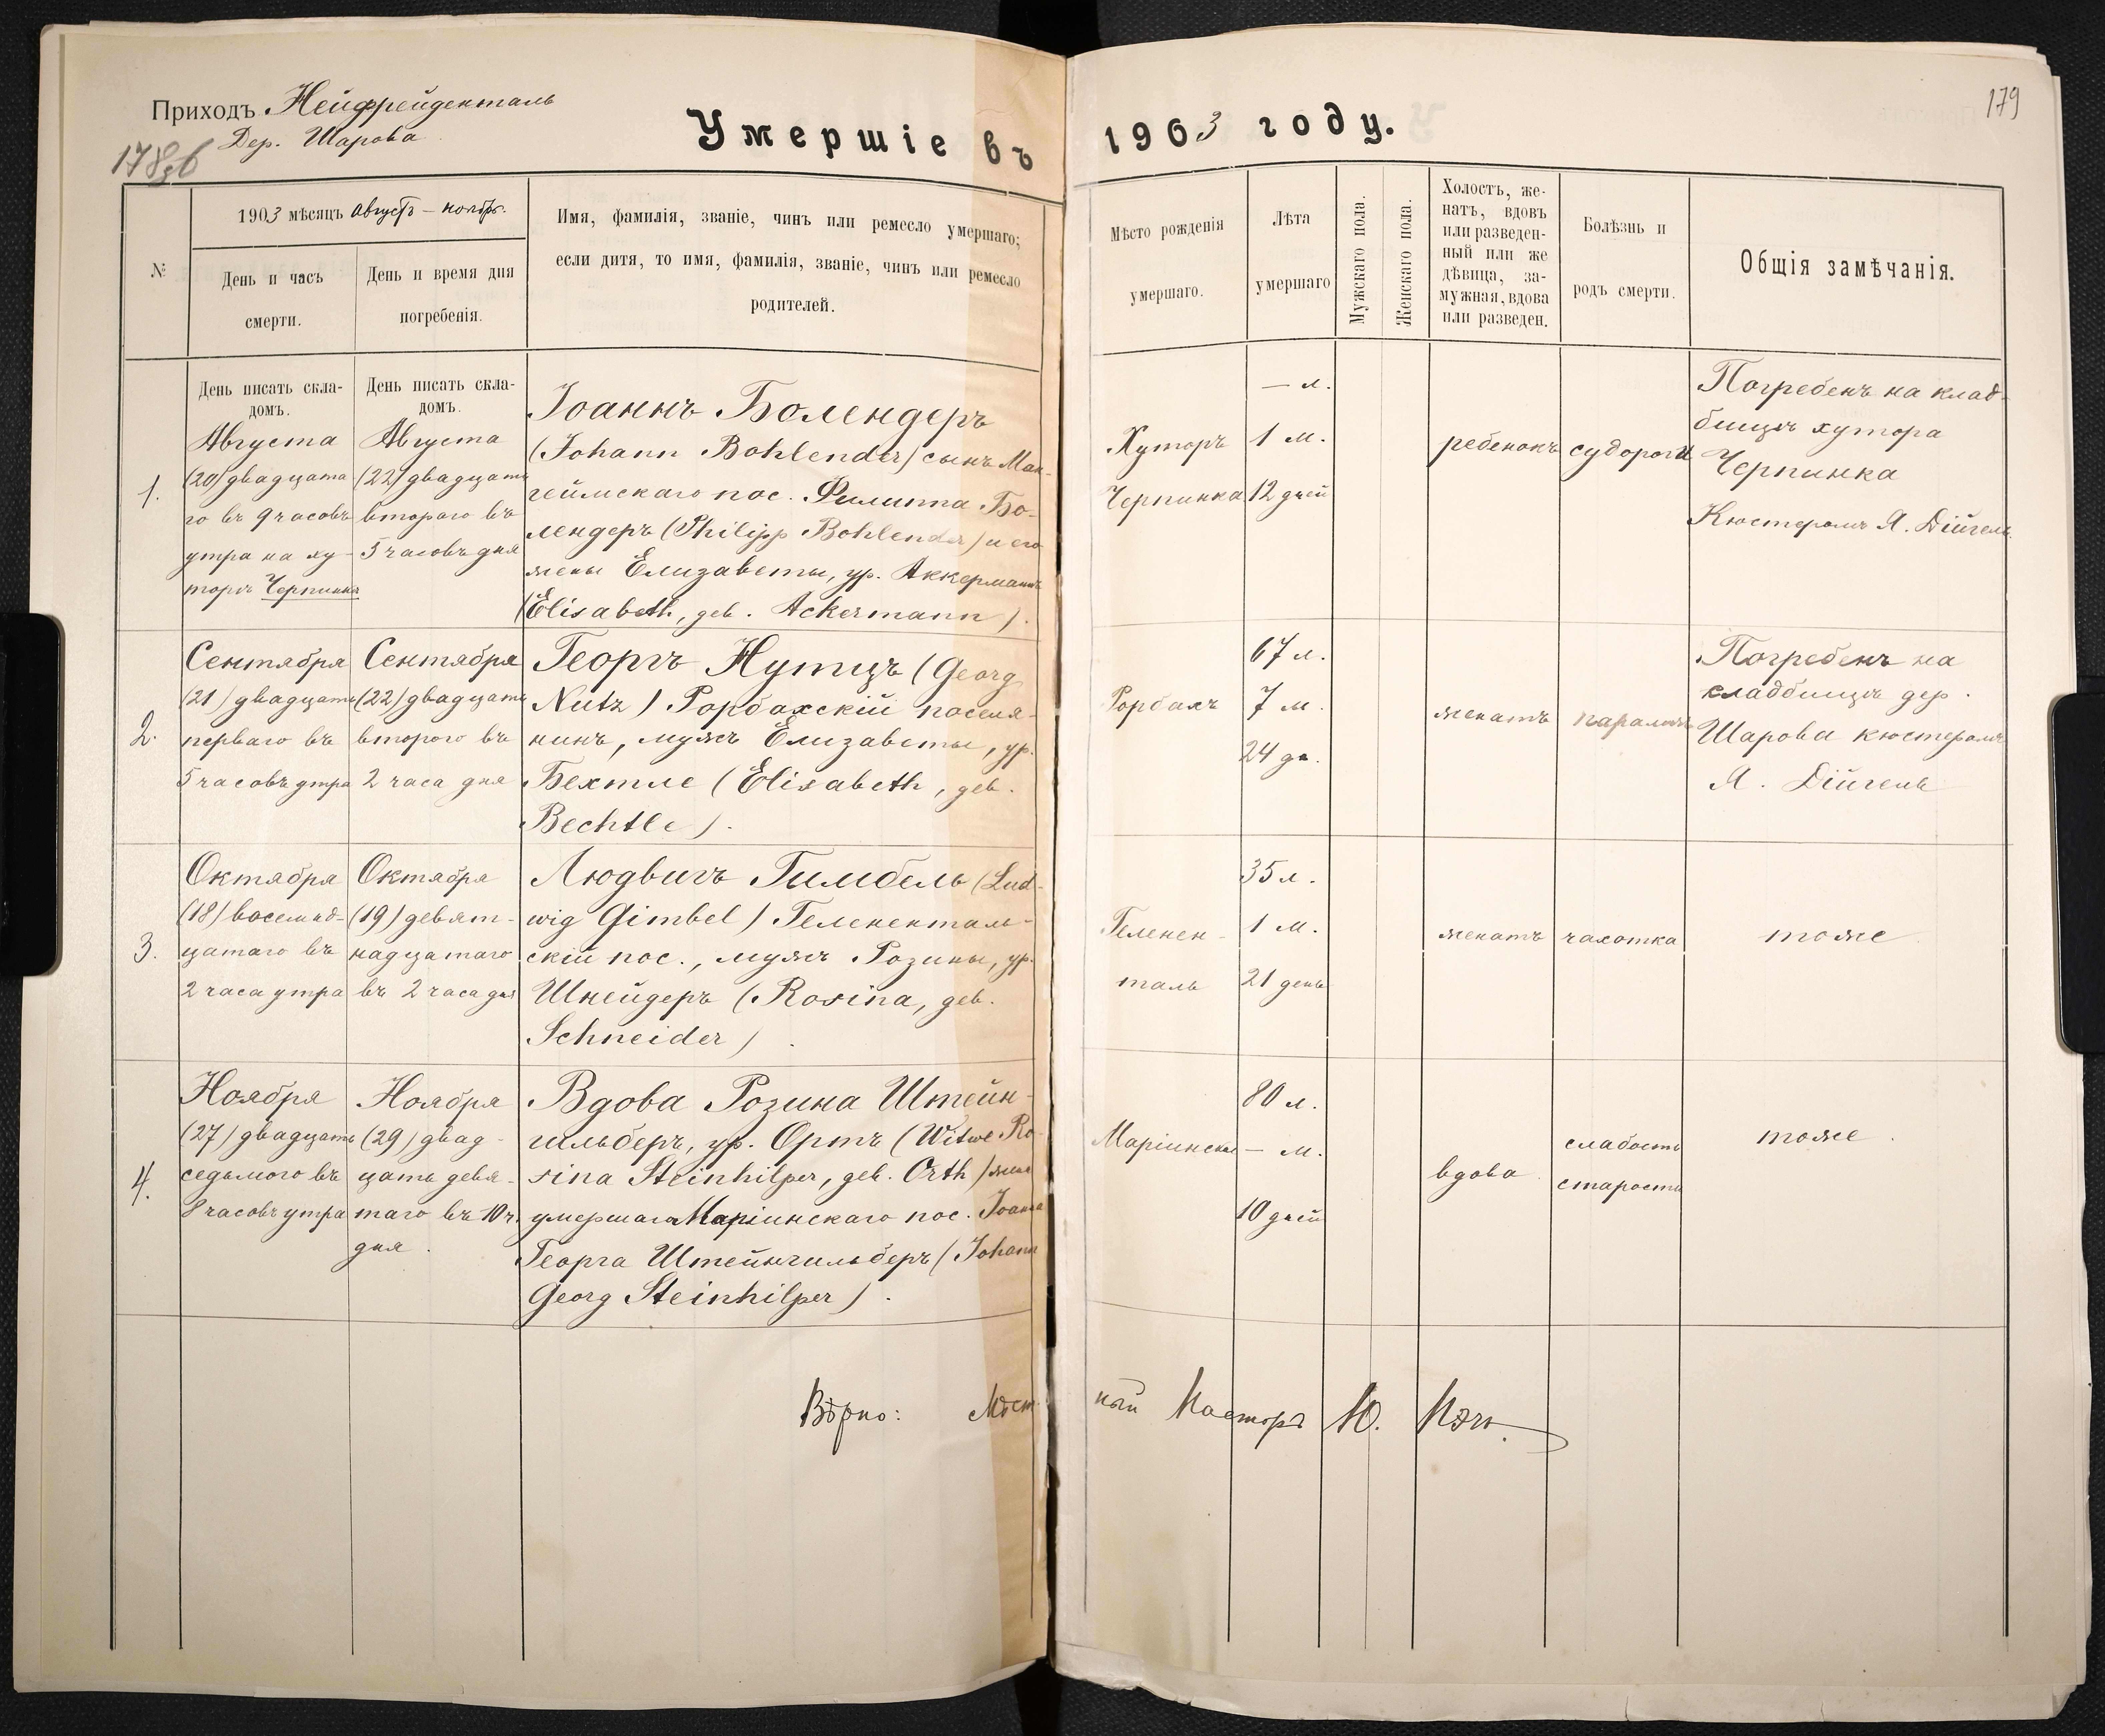 Приходъ Нейфрейденталь
Дер. Шарова
178об
Умершіе въ 1903 году.
179
№
1903 мѣсяцъ Августъ – ноябрь.
День и часъ
смерти.
День и время дня
погребенія.
Имя, фамилія, званіе, чинъ или ремесло умершаго;
если дитя, то имя, фамилія, званіе, чинъ или ремесло
родителей.
Мѣсто рожденія
умершаго.
Лѣта
умершаго
Мужскаго пола.
Женскаго пола.
Холостъ, же-
натъ, вдовъ
или разведен-
ный или же
дѣвица, за-
мужная, вдова
или разведен.
Болѣзнь и
родъ смерти.
Общія замѣчанія.
1.
День писать скла-
домъ.
Августа
(20) двадцата
го въ 9 часовъ
утра на ху-
торѣ Черпинка
День писать скла-
домъ.
Августа
(22) двадцать
второго въ
5 часовъ дня
Іоаннъ Болендеръ
(Johann Bohlender) сынъ Ман-
геймскаго пос. Филиппа Бо-
лендеръ (Philipp Bohlender) и его
жены Елизаветы, ур. Аккерманнъ
(Elisabeth, geb. Ackermann).
Хуторъ
Черпинка
— л.
1 м.
12 дней
ребенокъ
судороги
Погребенъ на клад-
бищѣ хутора
Черпинка
Кюстеромъ Я. Дійгель
2.
Сентября
(21) двадцать
перваго въ
5 часовъ утра
Сентября
(22) двадцать
второго въ
2 часа дня
Георгъ Нутцъ (Georg
Nutz) Рорбахскій поселя-
нинъ, мужъ Елизаветы, ур.
Бехтле (Elisabeth, geb.
Bechtle).
Рорбахъ
67 л.
7 м.
24 дн.
женатъ
параличъ
Погребенъ на
кладбищѣ дер.
Шарова кюстеромъ
Я. Дійгель
3.
Октября
(18) восемнад-
цатаго въ
2 часа утра
Октября
(19) девят-
надцатаго
въ 2 часа дня
Людвигъ Гимбель (Lud-
wig Gimbel) Гелененталь-
скій пос., мужъ Розины, ур.
Шнейдеръ (Rosina, geb.
Schneider).
Геленен-
таль
35 л.
1 м.
21 день
женатъ
чахотка
тоже
4.
Ноября
(27) двадцать
седьмого въ
8 часовъ утра
Ноября
(29) двад-
цать девя-
таго въ 10 ч.
дня.
Вдова Розина Штейн-
гильберъ, ур. Ортъ (Witwe Ro-
sina Steinhilper, geb. Orth) жена
умершаго Маріинскаго пос. Іоанна
Георга Штейнгильберъ (Johann
Georg Steinhilper).
80 л.
— м.
10 дней
вдова
слабость
старости
тоже.
Вѣрно: Мѣст ный Пасторъ Ю.